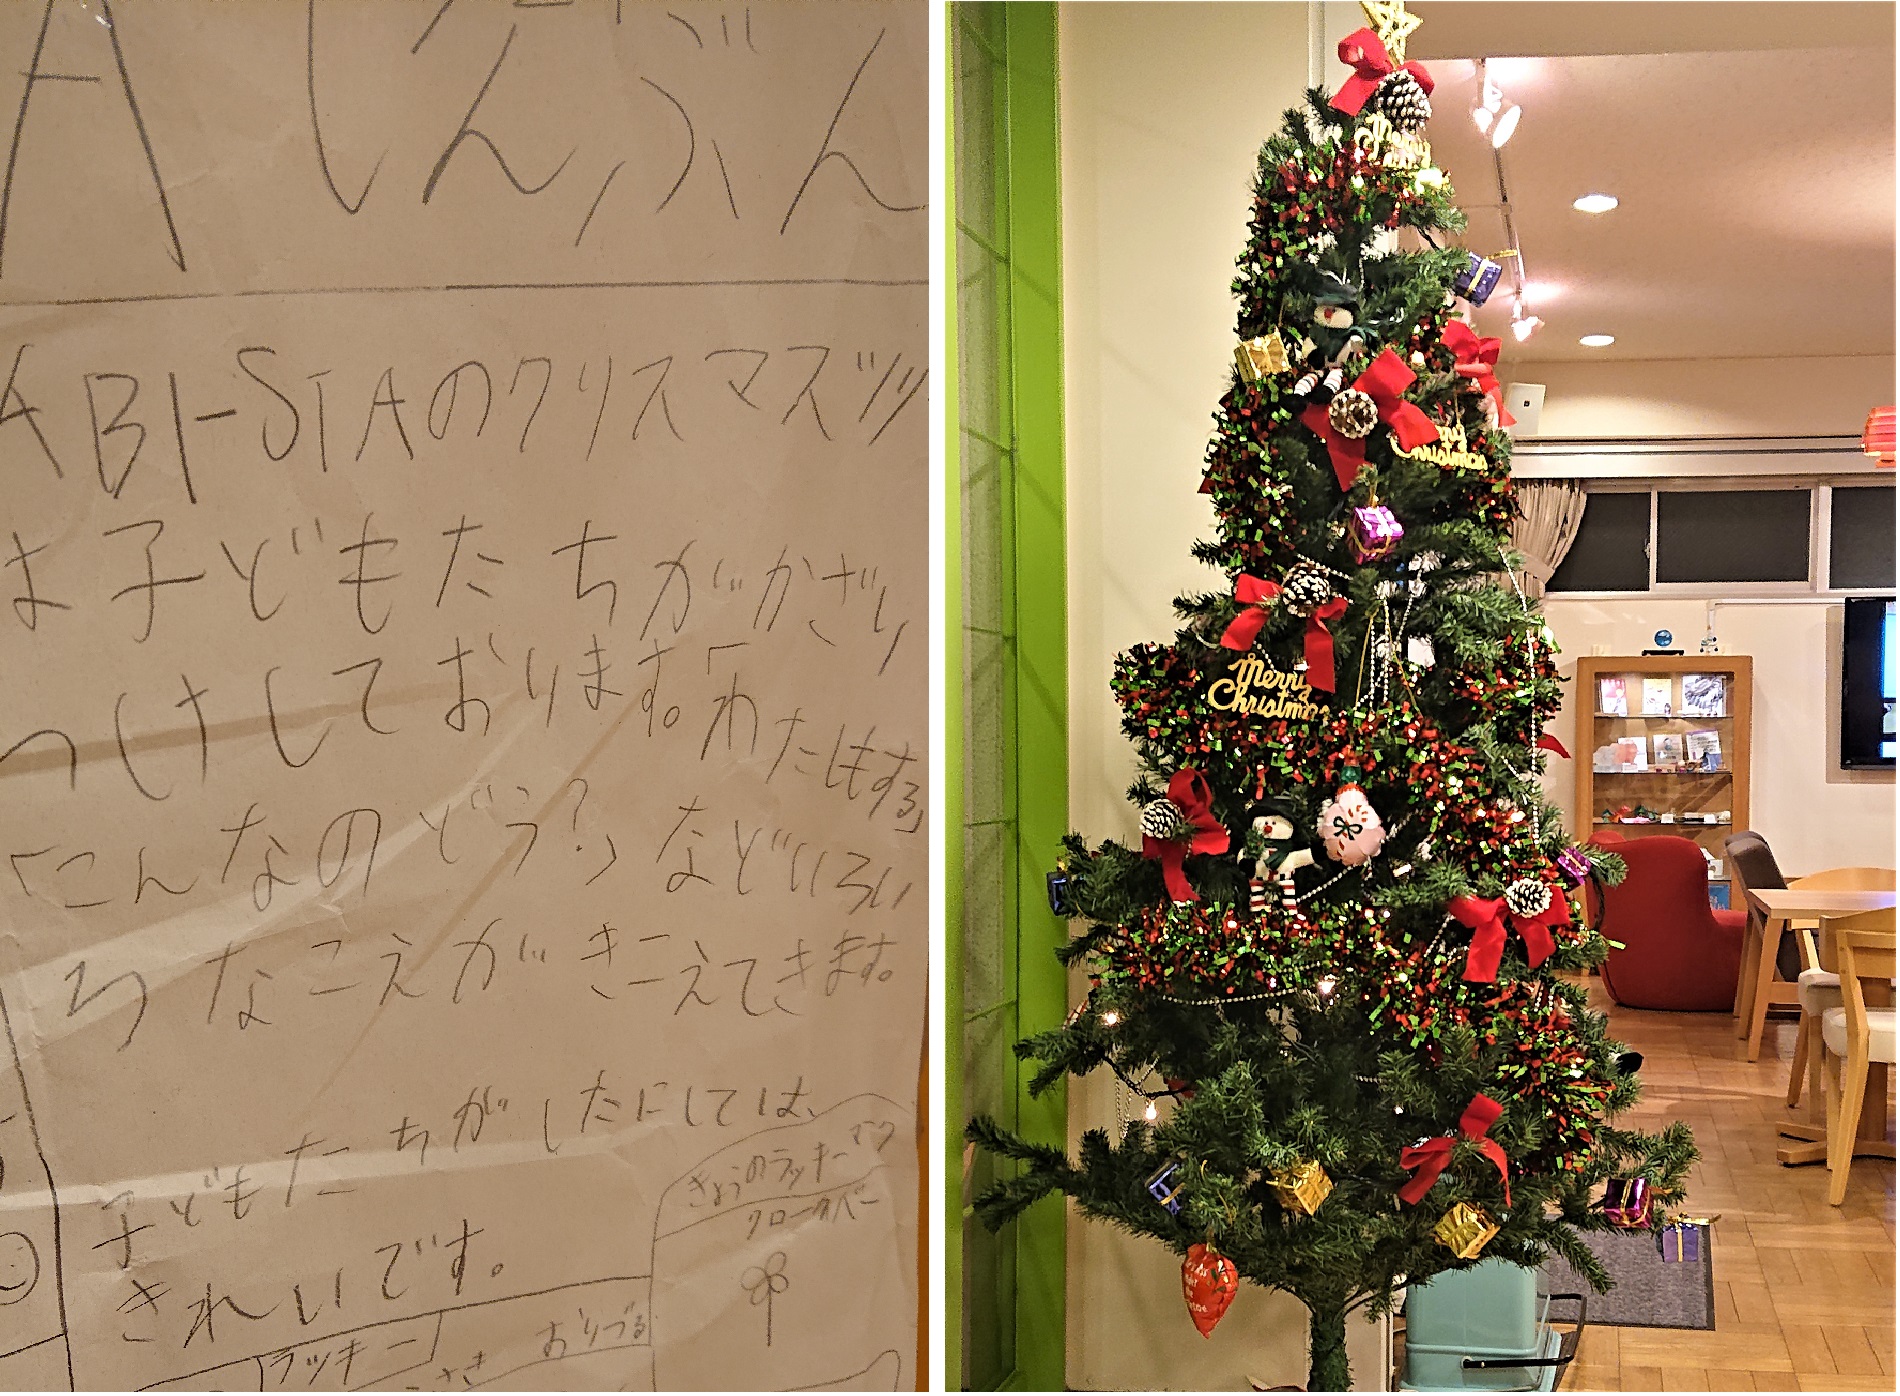 A しんぶん
ABI-STAのクリスマスツリー
は子どもたちがかざり
つけしております。「わたしもする」
「こんなのどう?」などいろい
ろなこえがきこえてきます。
子どもたちがしたにしては、
きれいです。
きょうのラッキーマーク
クローバー
ラッキー
おりづる
Merry
Merry
Christmas
Merry
Christmas